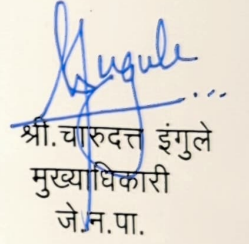 श्री.चारुदत्त इंगुले
मुख्याधिकारी
जे.न.पा.